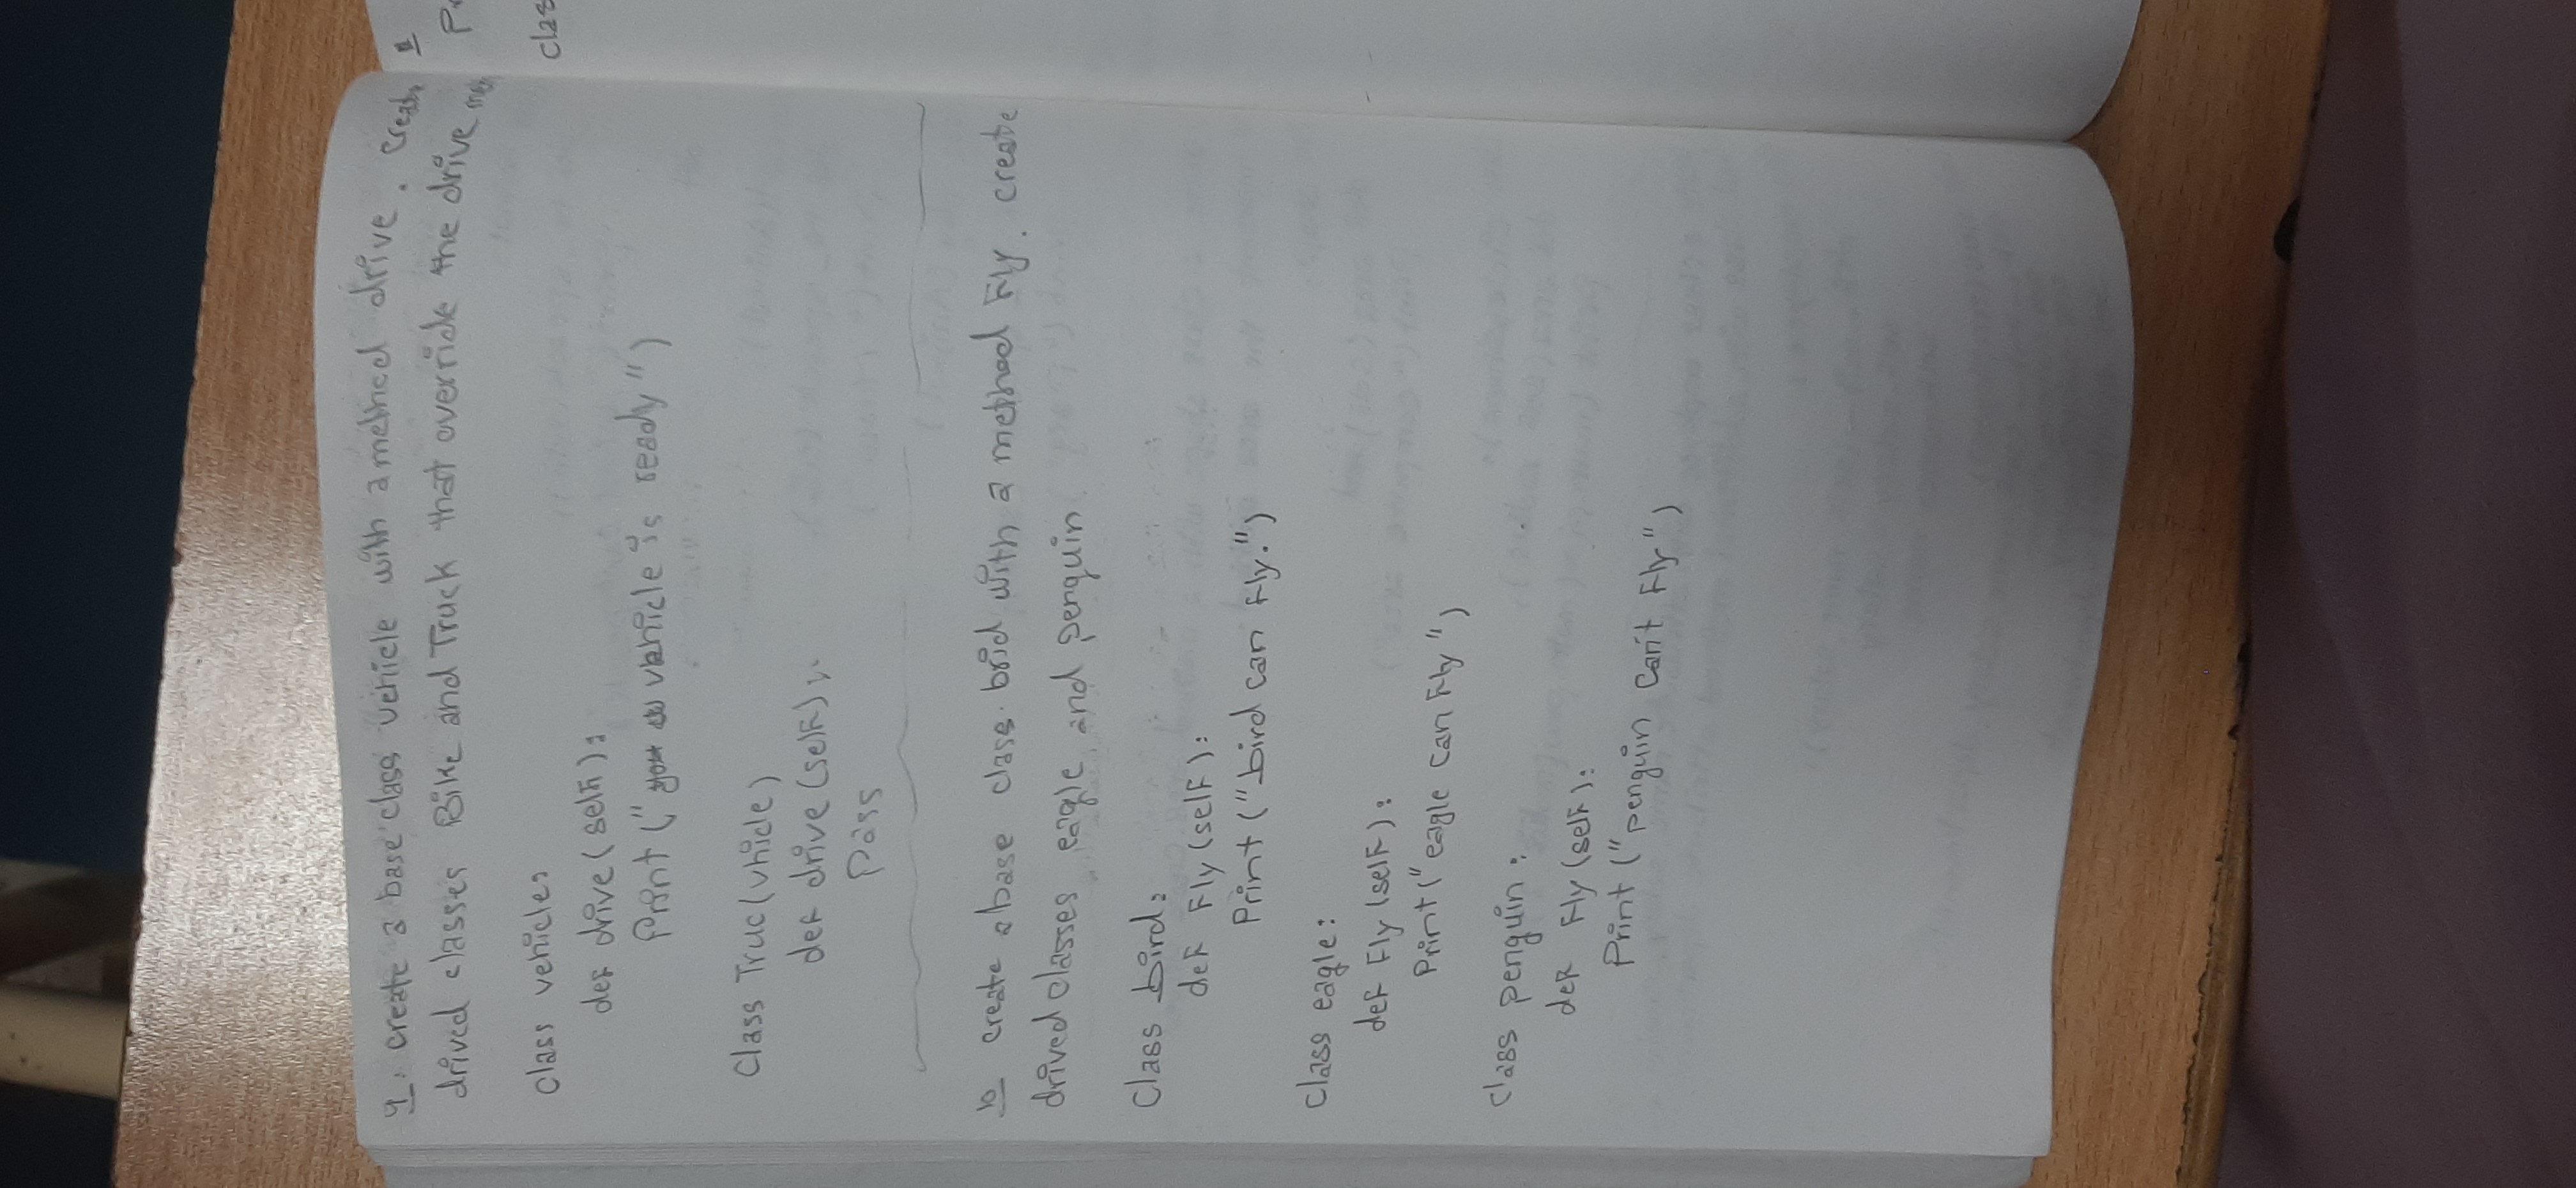 9. create a base class vehicle with a method drive. create
drived classes Bike and Truck that override the drive
class vehicle:
def drive (self):
Print ("vehicle is ready")
Class Truc(vhicle)
def drive (self):
Pass
10 create a base class brid with a method Fly. create
drived classes eagle and penguin
Class bird:
def Fly (self):
Print ("bird can fly.")
Class eagle:
def Fly (self):
Print ("eagle can Fly")
Class penguin:
def Fly (self):
Print ("penguin can't Fly")
clas